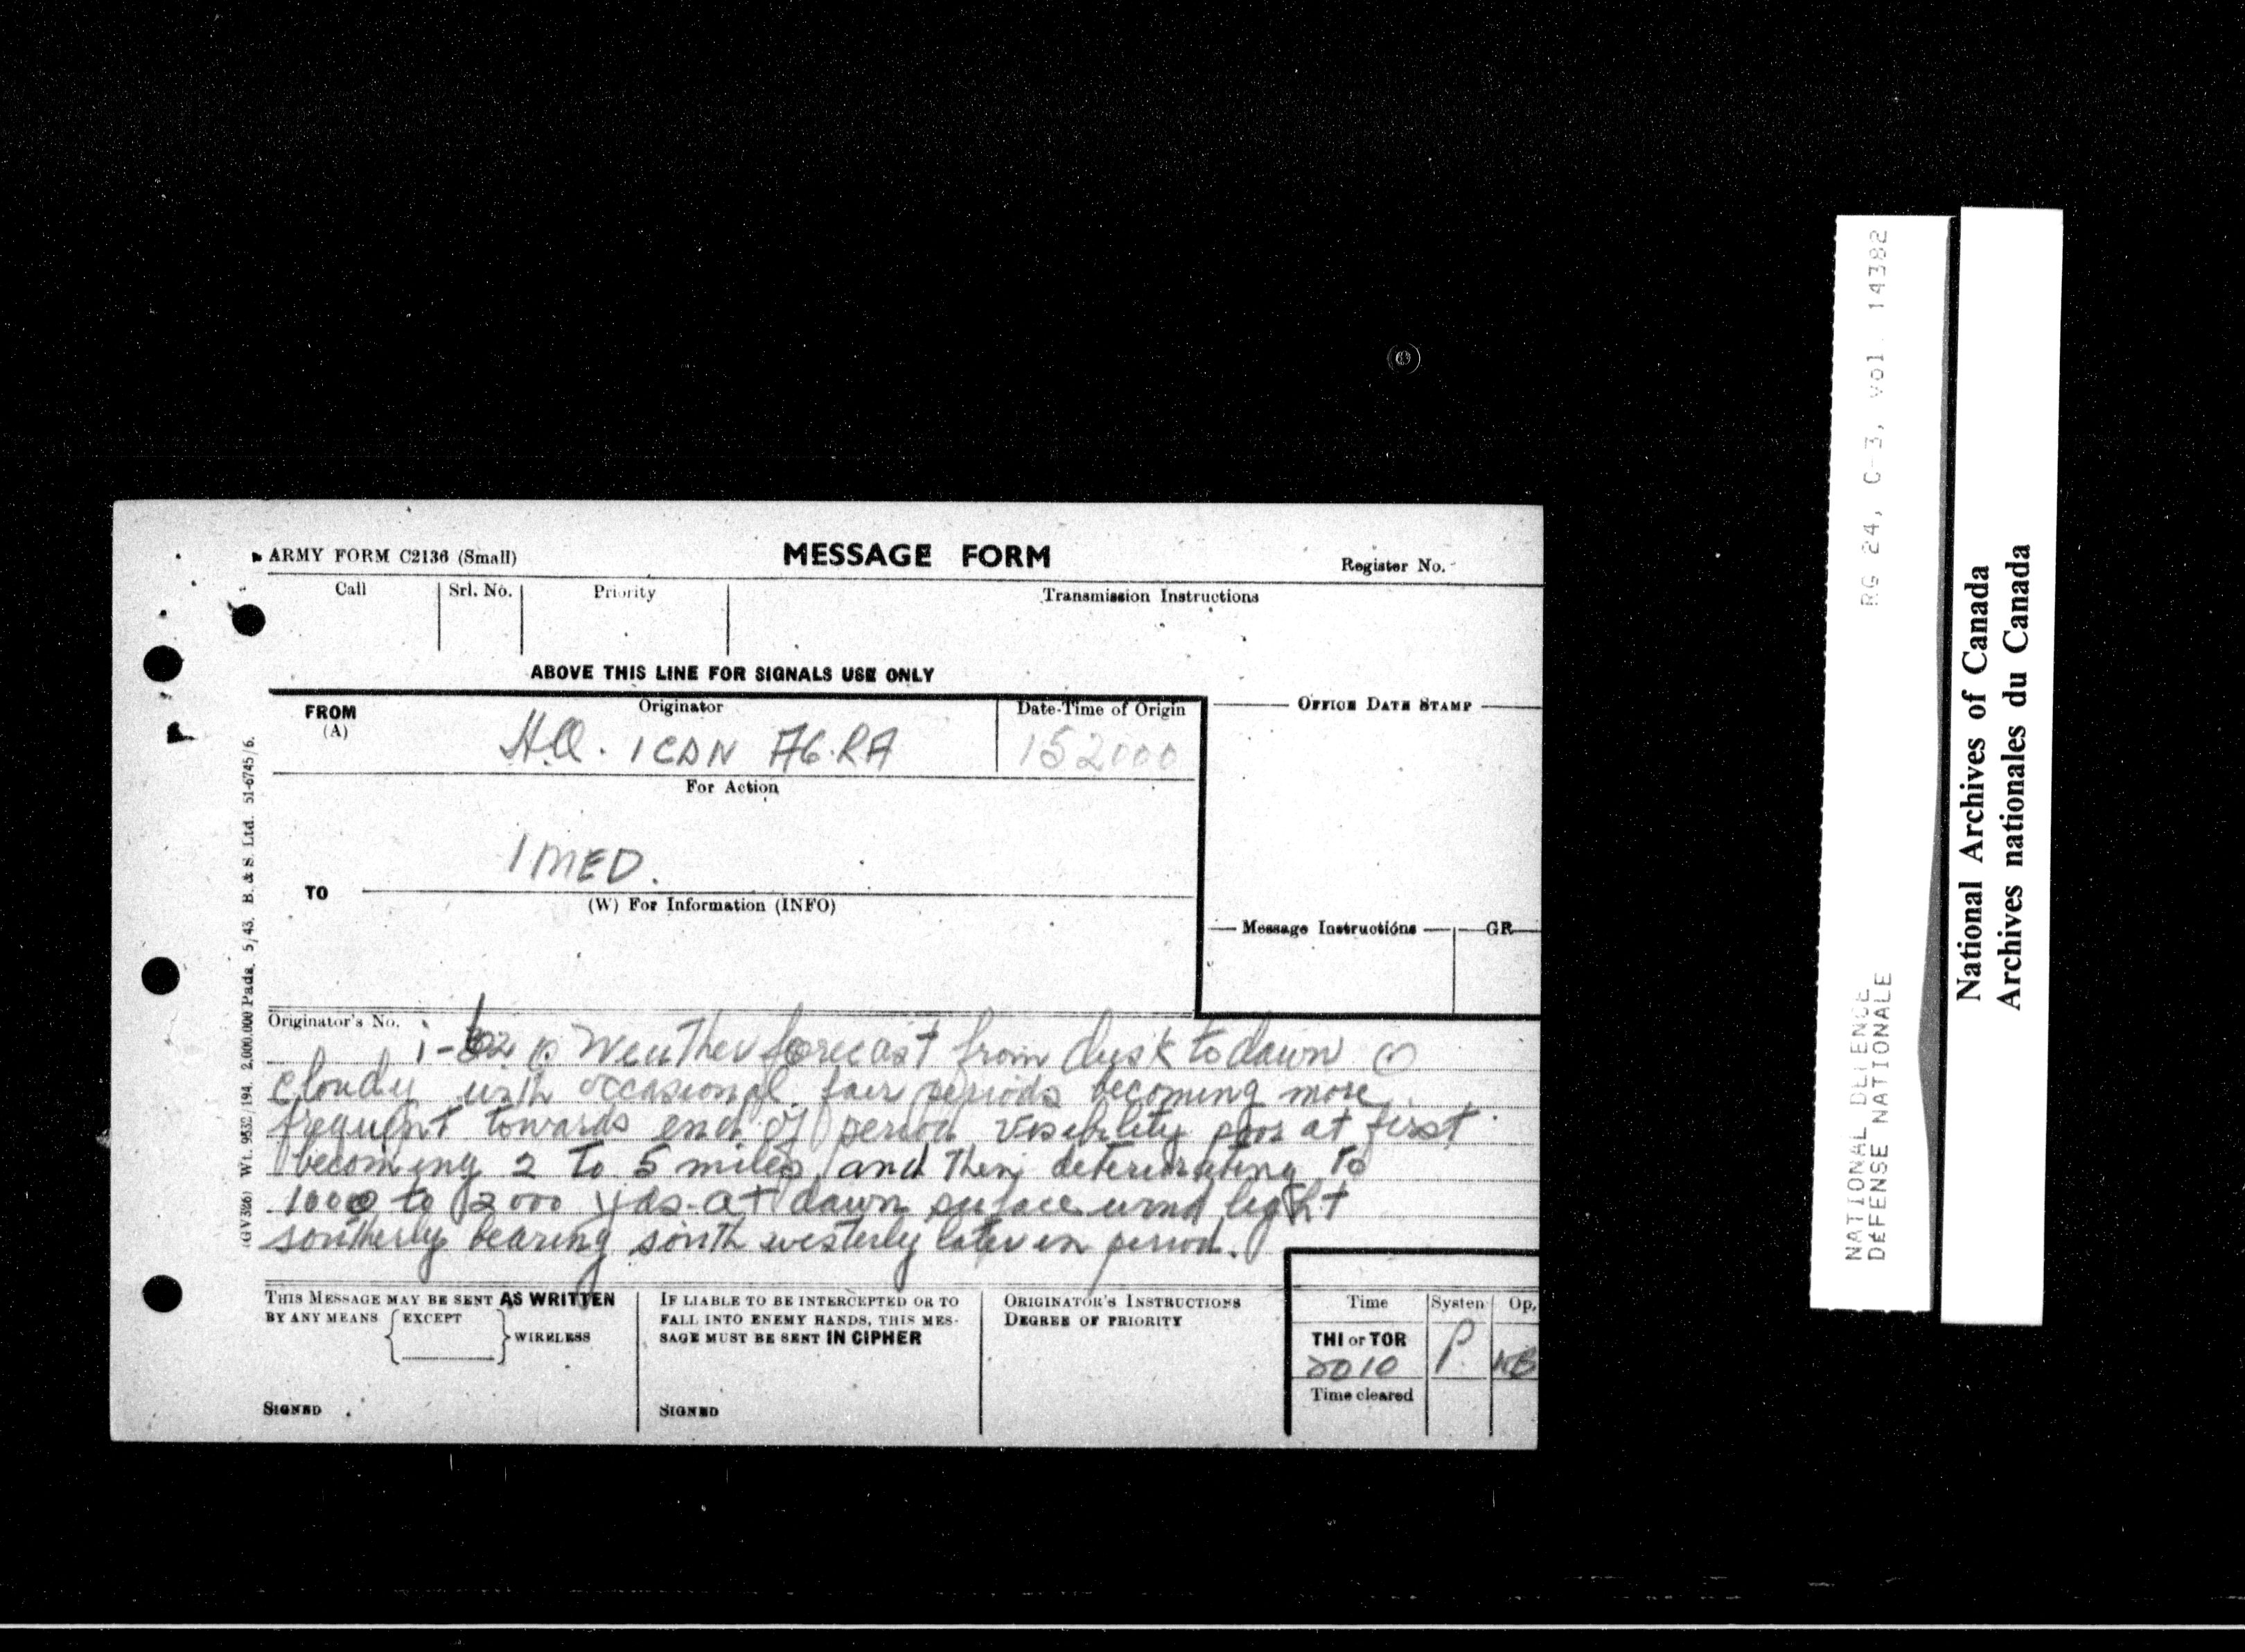 ARMY FORM C2136 (Small)
MESSAGE FORM
Register No.
Call
Srl. No.
Priority
Transmission Instructions
ABOVE THIS LINE FOR SIGNALS USE ONLY
FROM
(A)
Originator
H.Q. 1 CDN AG.RA
Date-Time of Origin
152000
OFFICE DATE STAMP
For Action
1 MED.
TO
(W) For Information (INFO)
Message Instructions
GR
Originator's No.
Weather forecast from dusk to dawn
cloudy with occasional fair periods becoming more
frequent towards end of period visibility poor at first
becoming 2 to 5 miles and then deteriorating to
1000 to 2000 yds at dawn surface wind light
southerly bearing south westerly later in period.
THIS MESSAGE MAY BE SENT AS WRITTEN
BY ANY MEANS EXCEPT WIRELESS
SIGNED
IF LIABLE TO BE INTERCEPTED OR TO
FALL INTO ENEMY HANDS, THIS MES-
SAGE MUST BE SENT IN CIPHER
SIGNED
ORIGINATOR'S INSTRUCTIONS
DEGREE OF PRIORITY
Time
System
Op.
THI or TOR
2010
P.
WB
Time cleared
Wt. 9632/194. 2,000,000 Pads. 5/43. B. & S. Ltd. 51-6745/6.
RG 24, C-3, vol. 14382
NATIONAL DEFENCE
DÉFENSE NATIONALE
National Archives of Canada
Archives nationales du Canada